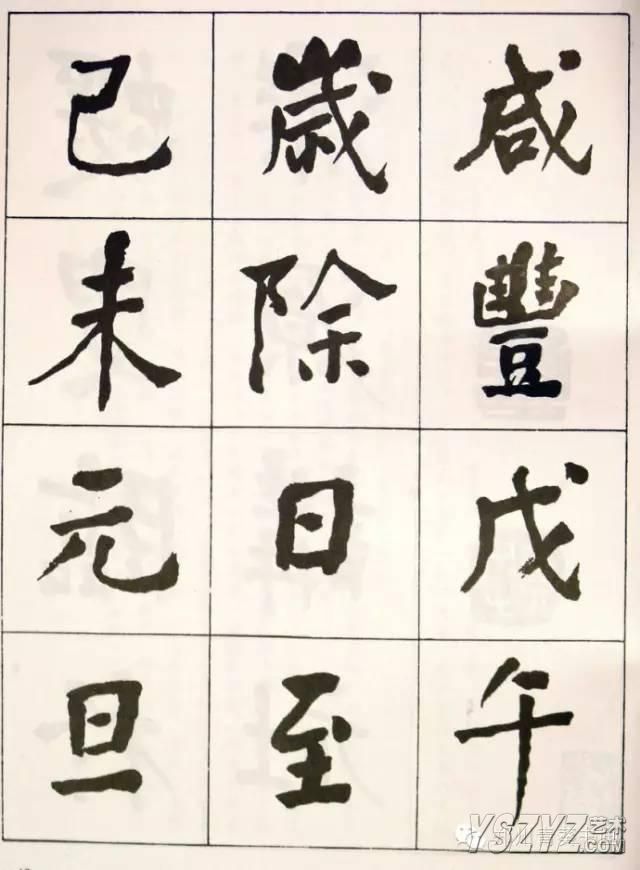 咸豐戊午
歲除日至
己未元旦
YSZYZ艺术
.COM